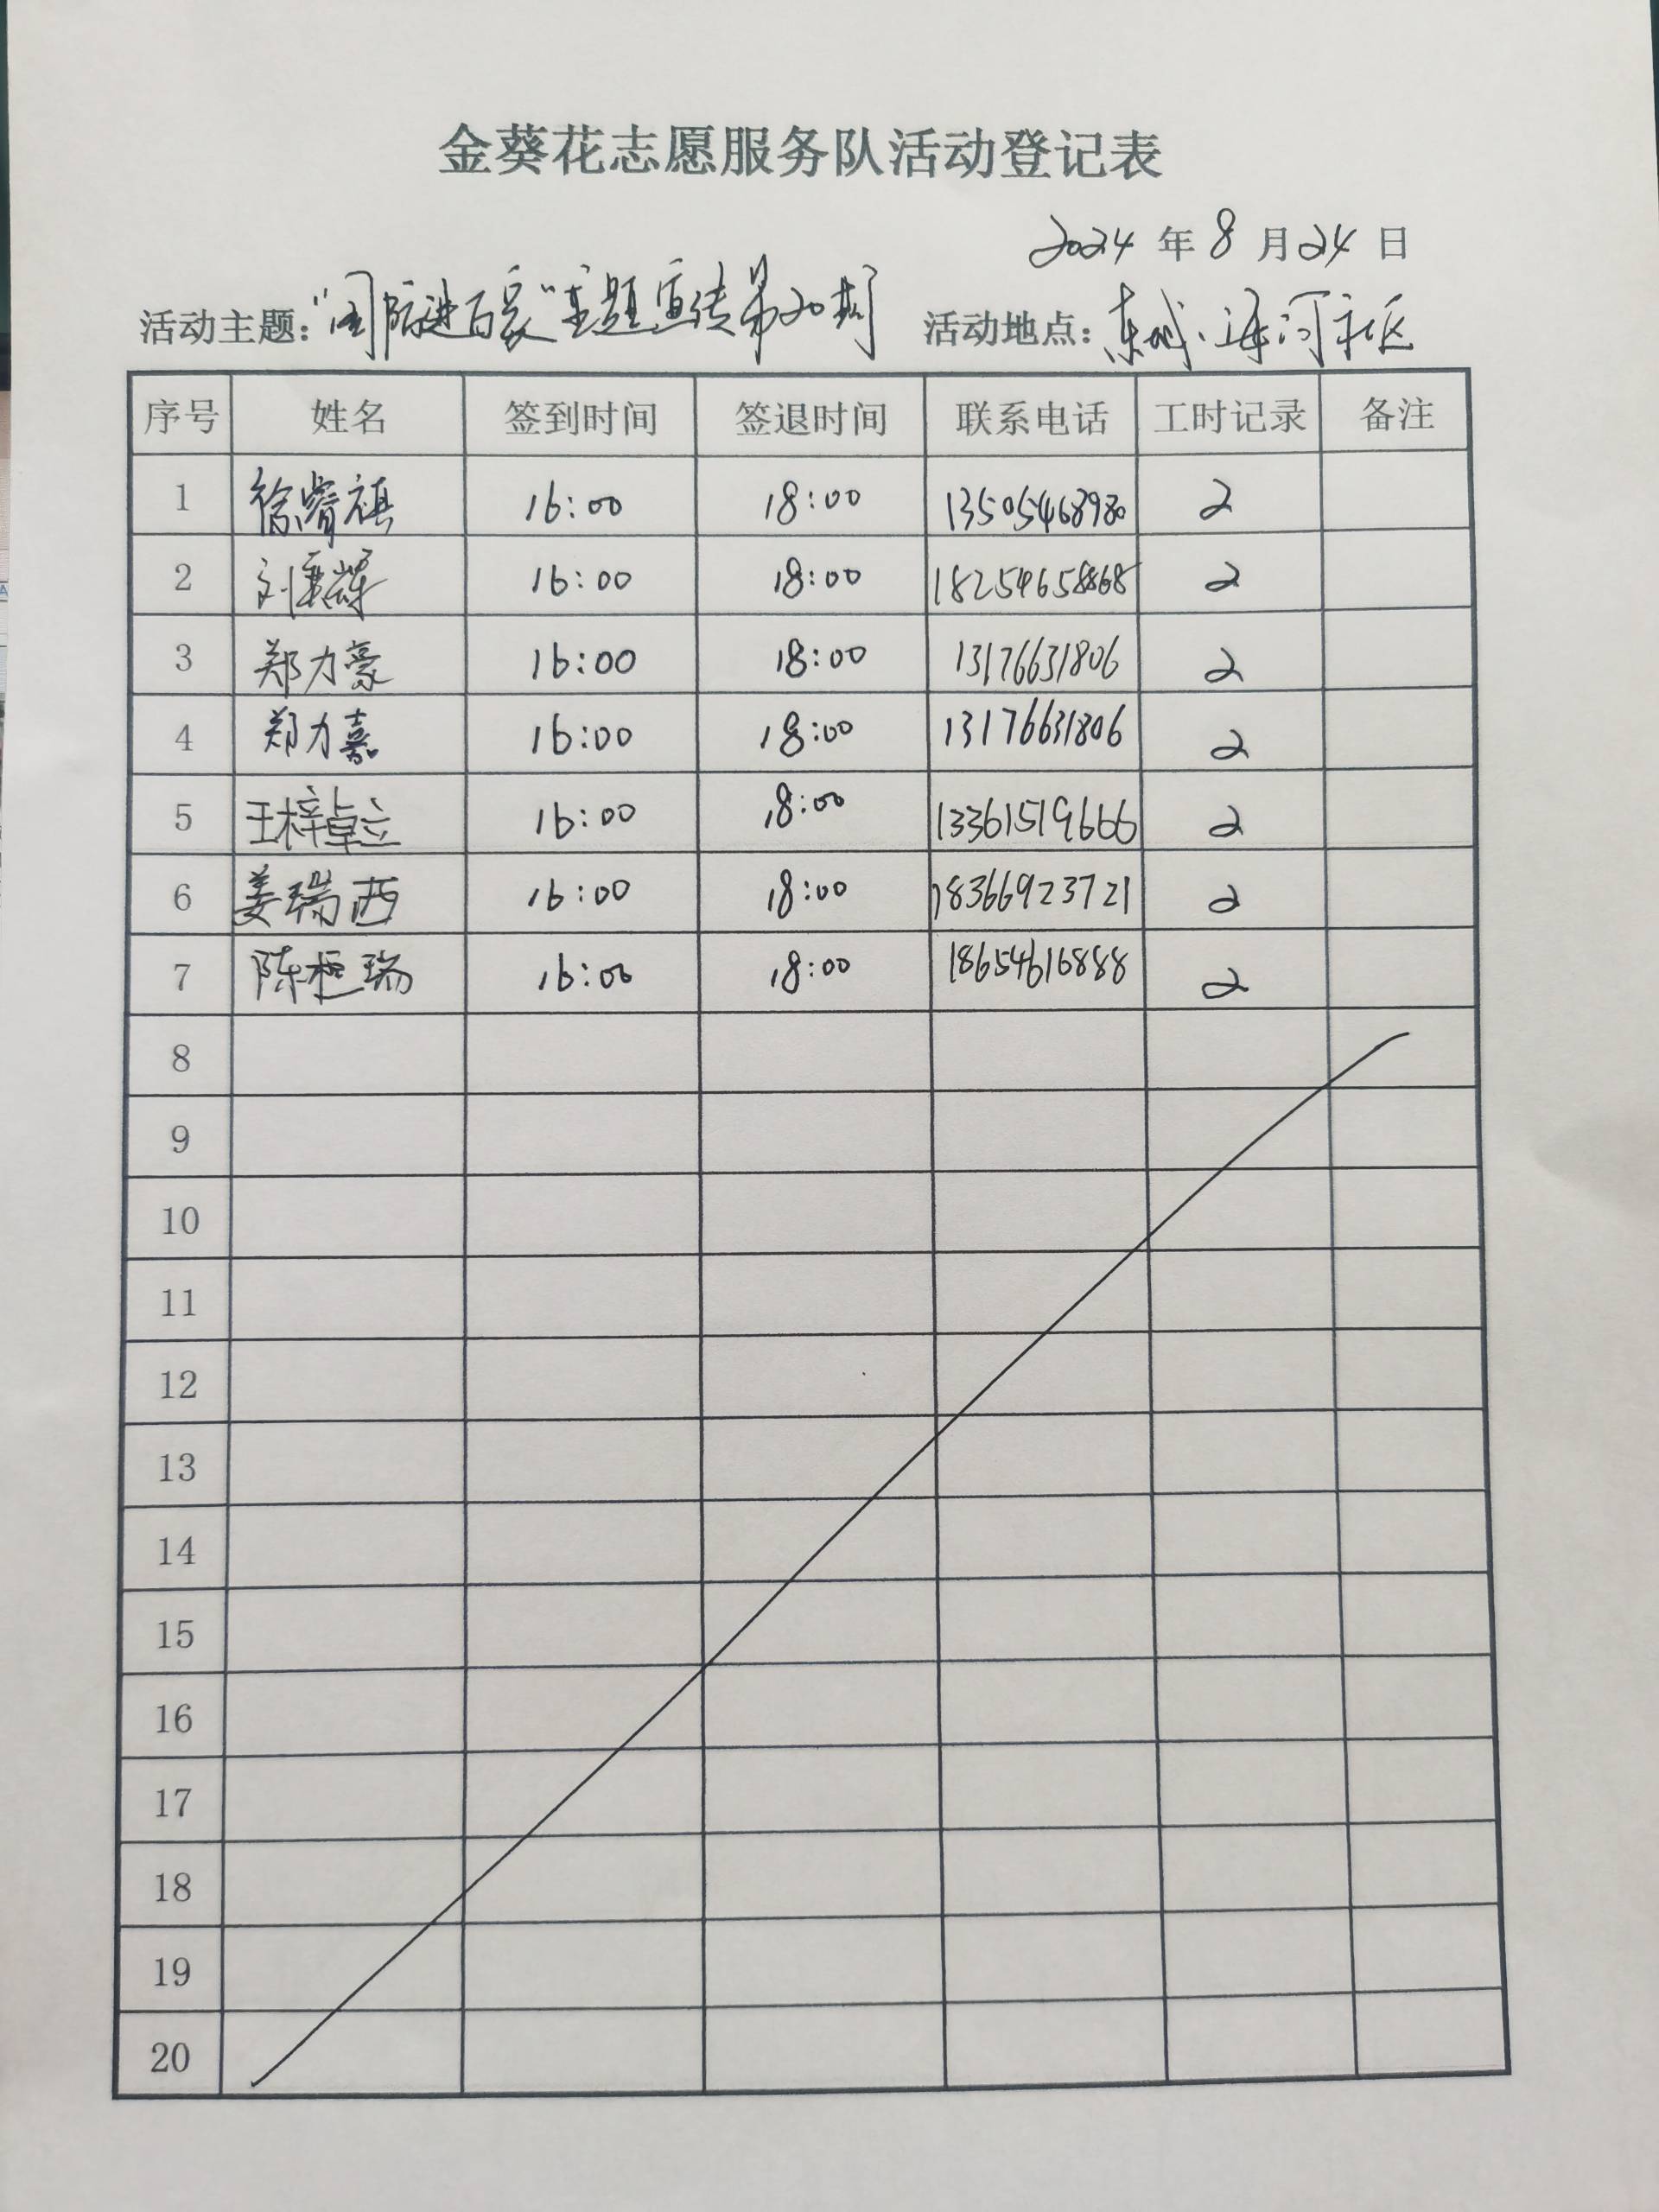 金葵花志愿服务队活动登记表
2024 年 8 月 24 日
活动主题:“国防进百家”主题宣传第20期 活动地点:东城·海河社区
序号 姓名 签到时间 签退时间 联系电话 工时记录 备注
1 徐睿祺 16:00 18:00 13505468980 2
2 刘秉辉 16:00 18:00 18254658868 2
3 郑力豪 16:00 18:00 13176631806 2
4 郑力嘉 16:00 18:00 13176631806 2
5 王梓卓立 16:00 18:00 13361519666 2
6 姜瑞西 16:00 18:00 18366923721 2
7 陈桓瑞 16:00 18:00 18654616888 2
8
9
10
11
12
13
14
15
16
17
18
19
20